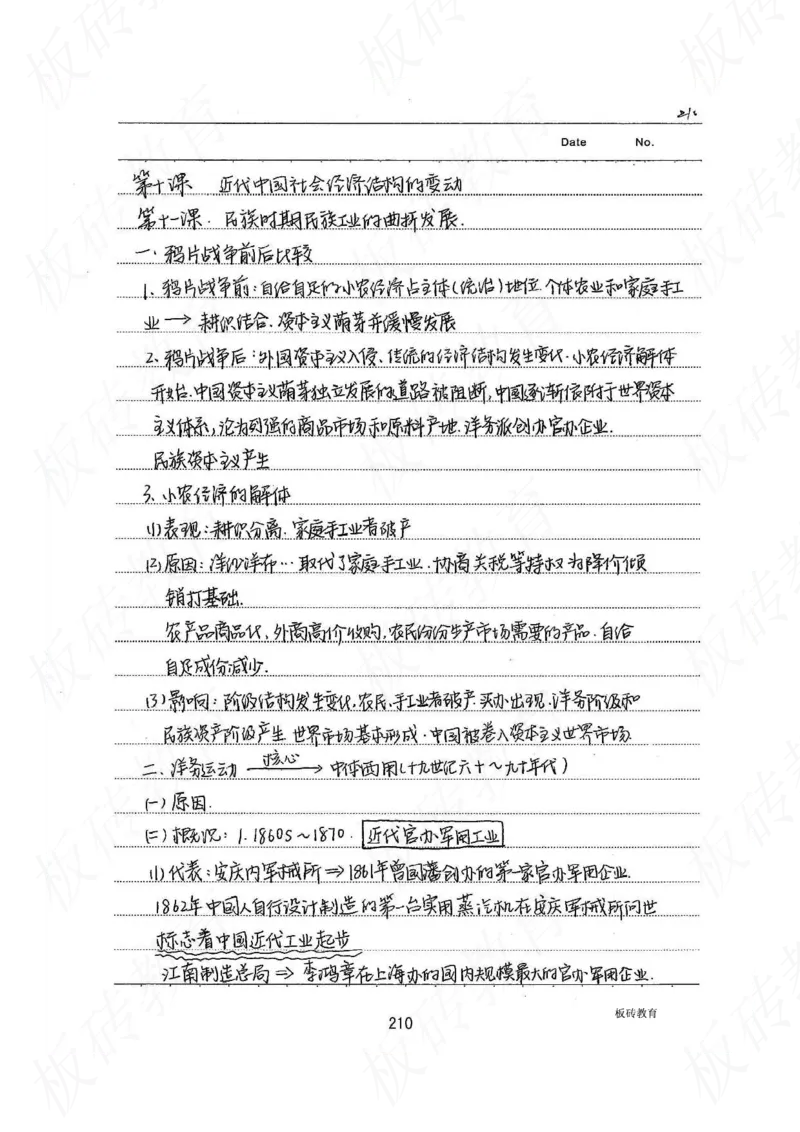 210
Date No.
第十课 近代中国社会经济结构的变动
第十一课. 民族时期民族工业的曲折发展.
一、鸦片战争前后比较
1、鸦片战争前:自给自足的小农经济占主体(统治)地位.个体农业和家庭手工
业→耕织结合.资本主义萌芽并缓慢发展
2、鸦片战争后:外国资本主义入侵、传统的经济结构发生变化.小农经济解体
开始.中国资本主义萌芽独立发展的道路被阻断,中国逐渐依附于世界资本
主义体系,沦为列强的商品市场和原料产地.洋务派创办官办企业.
民族资本主义产生
3、小农经济的解体
(1)表现:耕织分离.家庭手工业者破产
(2)原因:洋纱洋布…取代了家庭手工业.协商关税等特权为降价倾
销打基础.
农产品商品化、外商高价收购.农民纷纷生产市场需要的产品.自给
自足成份减少.
(3)影响:阶级结构发生变化,农民、手工业者破产.买办出现.洋务阶级和
民族资产阶级产生.世界市场基本形成.中国被卷入资本主义世界市场.
二、洋务运动 核心→ 中体西用(十九世纪六十~九十年代)
(一)原因.
(二)概况:1.1860s~1870. 近代官办军用工业
(1)代表:安庆内军械所⇒1861年曾国藩创办的第一家官办军用企业.
1862年中国人自行设计制造的第一台实用蒸汽机在安庆军械所问世
标志着中国近代工业起步
江南制造总局⇒李鸿章在上海办的国内规模最大的官办军用企业.
210
板砖教育